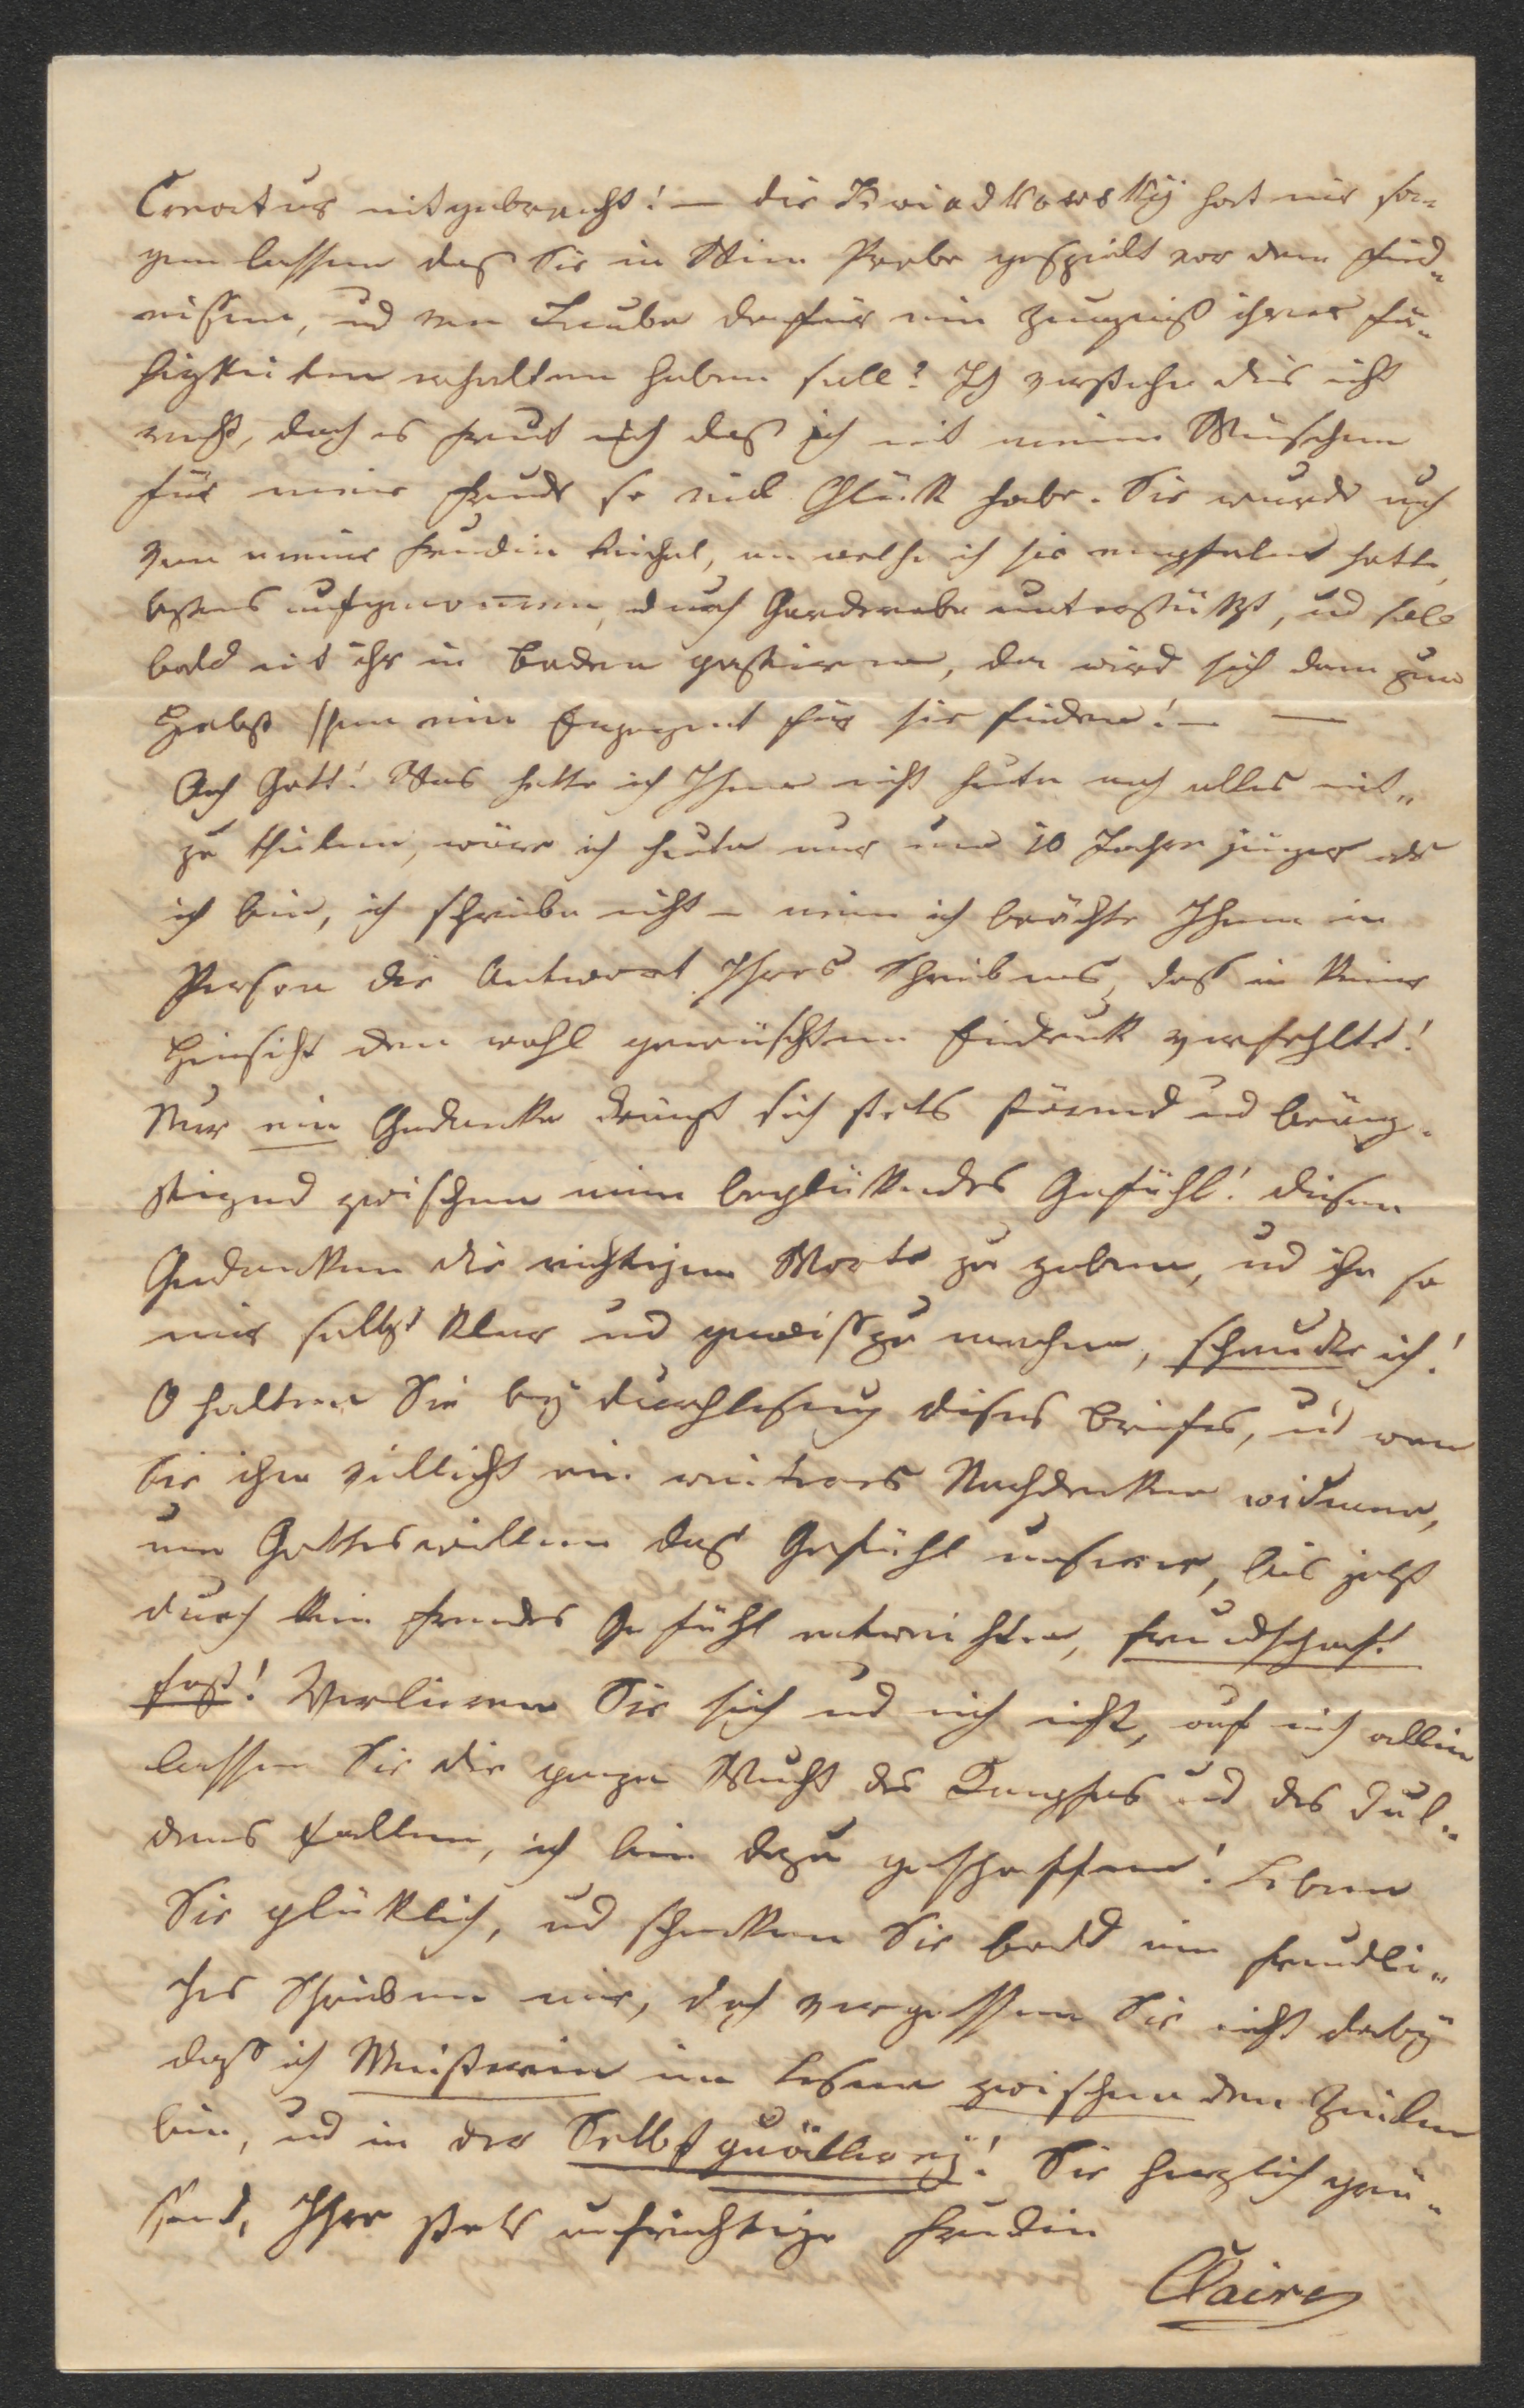 mitgebracht! — die Kwiadkowsky hat mir sa¬
gen lassen daß Sie in Wien Probe gespielt vor dem
und von Laube dafür ein Zeugniß ihrer Fä¬
higkeiten erhalten haben soll? Ich verstehe dies nicht
recht, doch es freut mich daß ich mit meinen Wünschen
für meine Freude so viel Glück habe. Sie wurde auch
von meiner Freudin an welche ich sie empfolen hatte,
bestens aufgenommen, durch Garderobe unterstützt, und soll
bald mit ihr in Baden gastieren, da wird sich dann zum
Herbst schon ein Engagment für sie finden! — —
Ach Gott! Was hätte ich Ihnen nicht heute noch alles mit„
zu theilen, wäre ich heute nur um 10 Jahre jünger als
ich bin, ich schriebe nicht – nein ich brächte Ihnen in
Person die Antwort Ihres Schreibens, daß in keiner
Hinsicht den wohl gewünschten Eindruck verfehlte!
Nur ein Gedanke drängt sich stets störend und beäng¬
stigend zwischen mein beglükendes Gefühl! diesen
Gedanken die richtigen Worte zu geben, und ihn so
mir selbst klar und gewiss zu machen, schaudre ich!
O halten Sie bey durchlesung dieses Briefes, und wen
Sie ihm villicht ein weiteres Nachdenken widmen,
um Gotteswillen das Gefühl unserer, bis jetzt
durch kein fremdes Gefühl entweihten, Freundschaft
fest! Verlieren Sie sich und mich nicht, auf mich allein
lassen Sie die ganze Wucht des Kampfes und des Dul„
dens fallen, ich bin dazu geschaffen! Leben
Sie glüklich, und schenken Sie bald ein freundli„
ches Schreiben mir, doch vergessen Sie nicht dabey
daß ich Meisterin im Lesen zwischen den Zeilen
bin, und in der Selbstquällerey! Sie herzlich grü„
ssend, Ihre stets aufrichtige Freudin
Claire